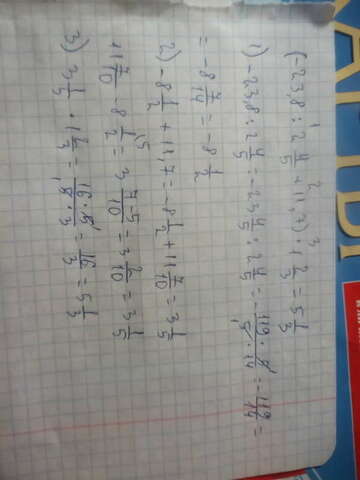 (-23,8 : 2 4/5 + 11,7) · 1 2/3 = 5 1/3
1) -23,8 : 2 4/5 = -23 4/5 : 2 4/5 = -(119·5)/(5·14) = -119/14 =
= -8 7/14 = -8 1/2
2) -8 1/2 + 11,7 = -8 1/2 + 11 7/10 = 3 1/5
+11 7/10 - 8 1/2 = 3 (7-5)/10 = 3 2/10 = 3 1/5
3) 3 1/5 · 1 2/3 = (16·5)/(5·3) = 16/3 = 5 1/3